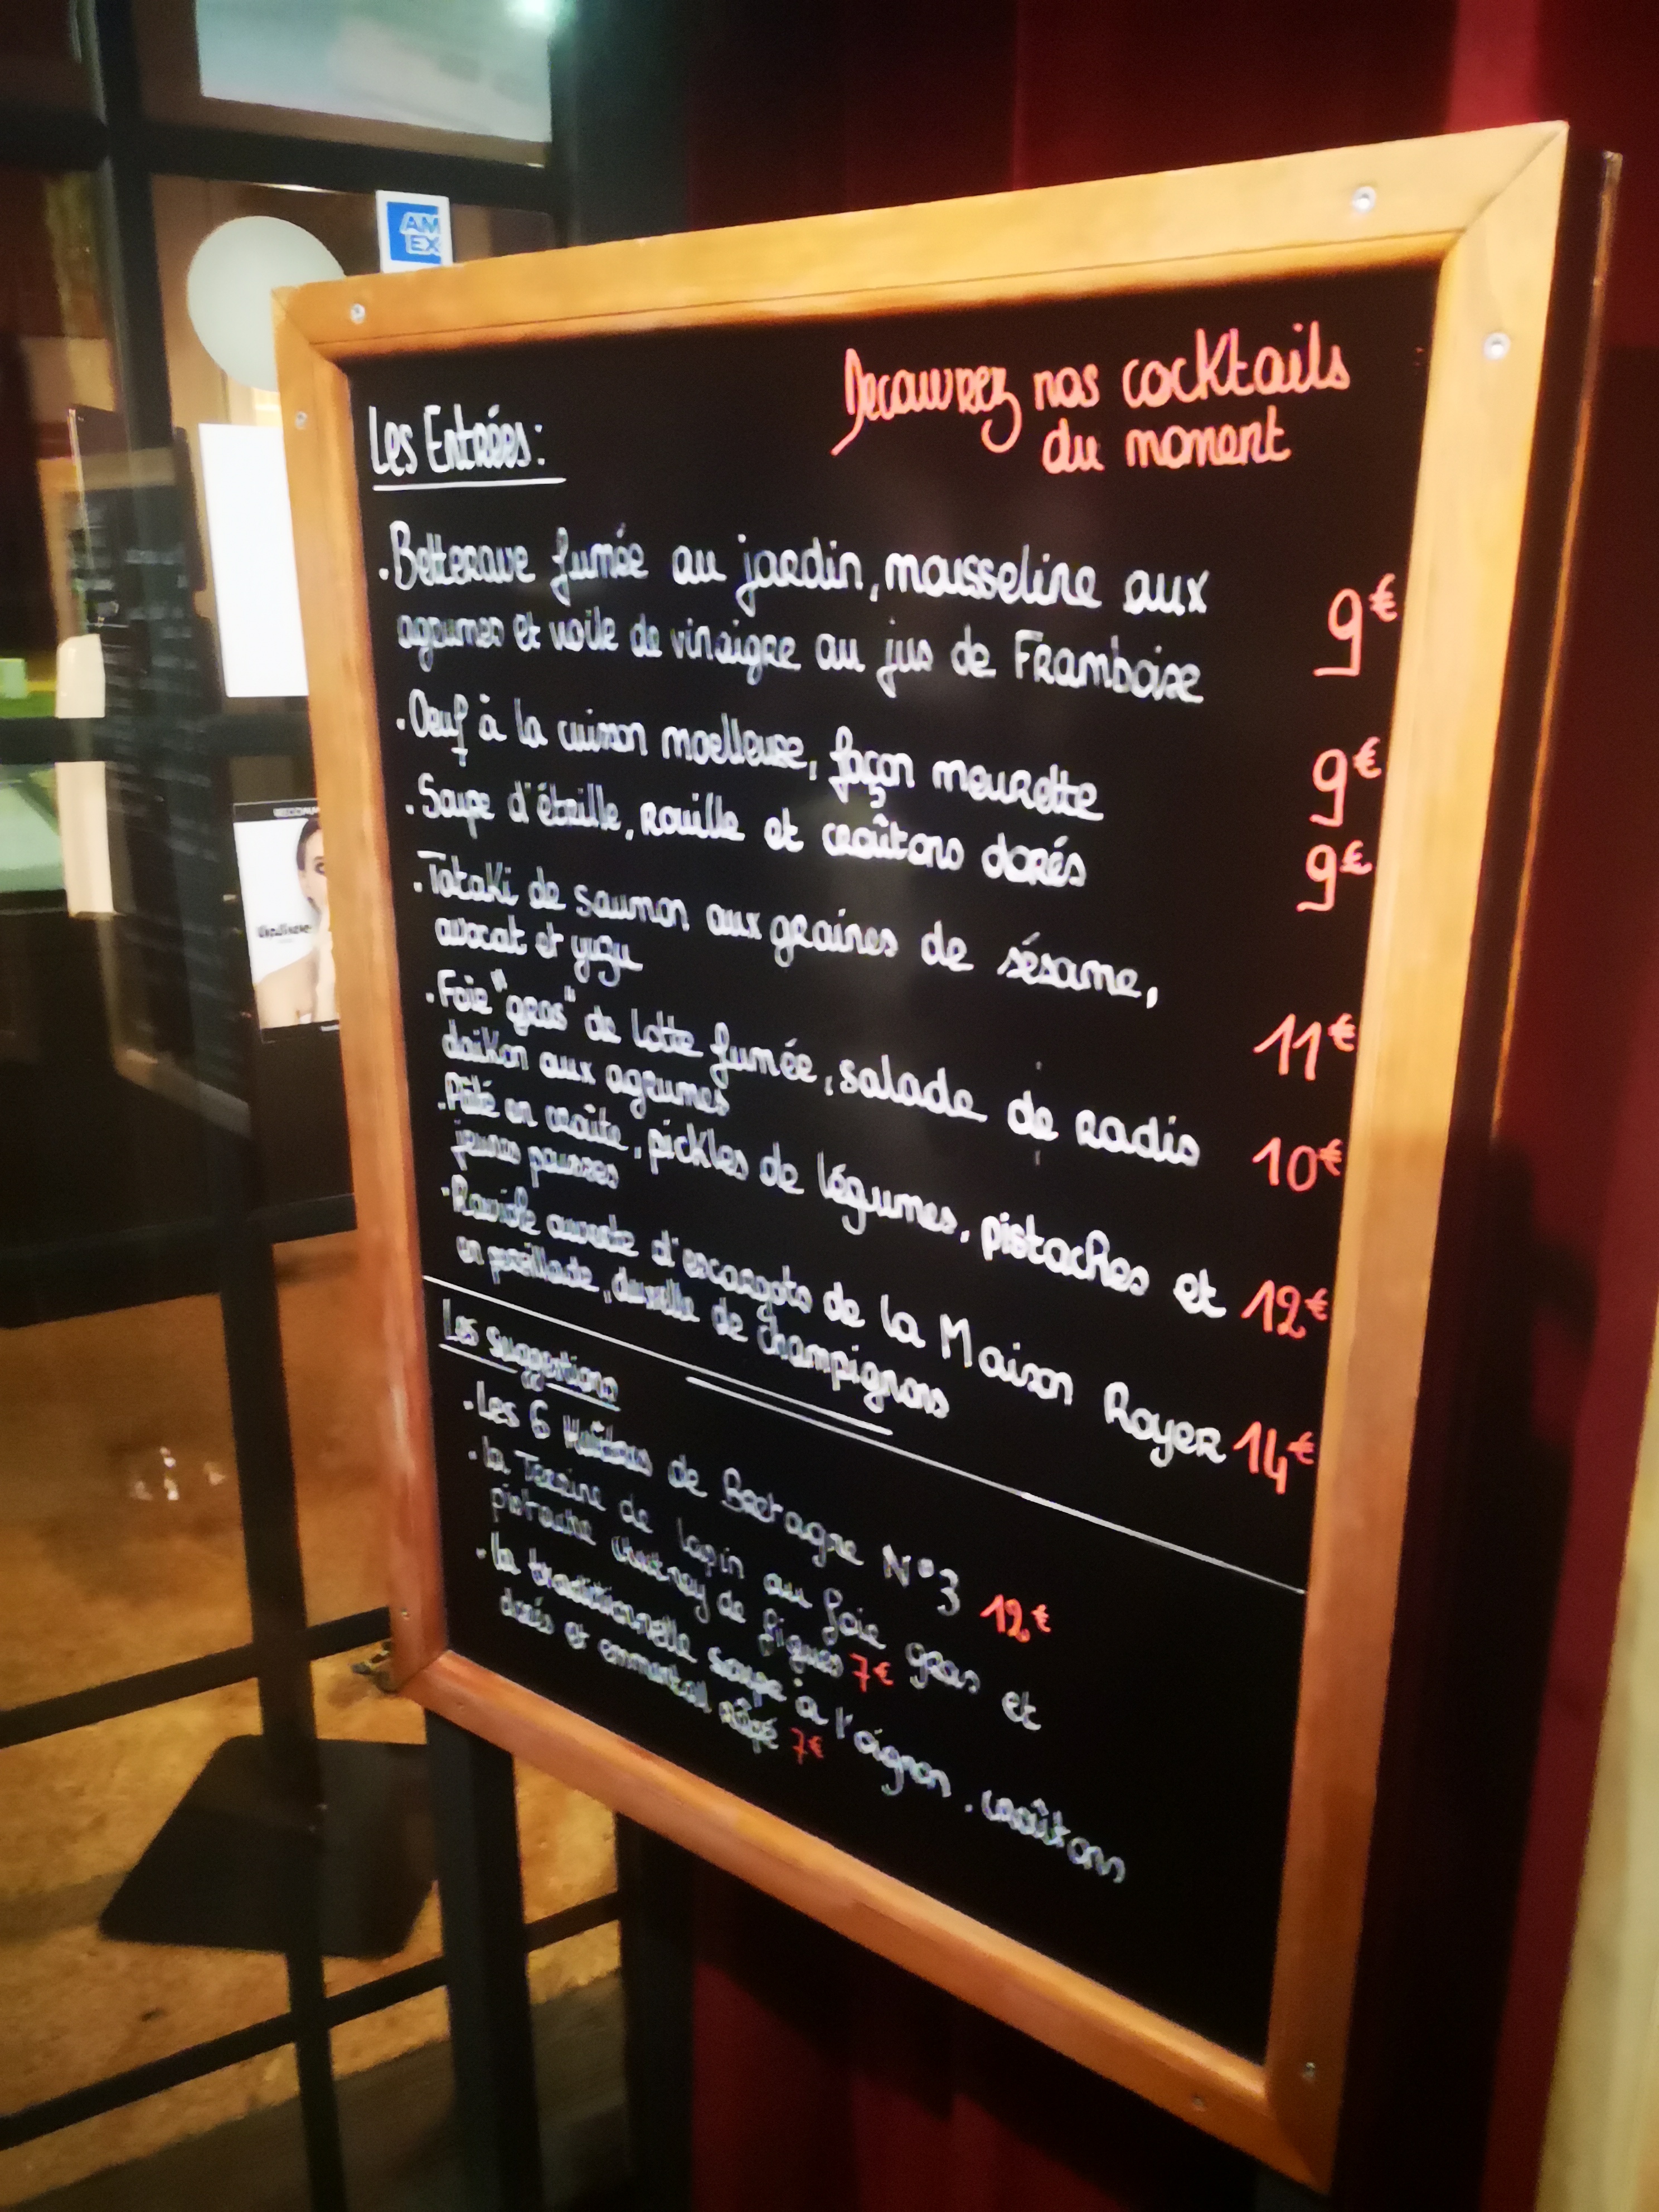 AM
EX
Decouvrez nos cocktails
du moment
Les Entrées:
. Betterave fumée au jardin, mousseline aux
agrumes et voile de vinaigre au jus de Framboise 9€
. Oeuf à la cuisson moelleuse, façon meurette 9€
. Soupe d'étrille, rouille et croûtons dorés 9€
. Tataki de saumon aux graines de sésame,
avocat et yuzu 11€
. Foie "gras" de lotte fumée, salade de radis
daikon aux agrumes 10€
. Pâté en croûte, pickles de légumes, pistaches et 12€
jeunes pousses
. Raviole ouverte d'escargots de la Maison Royer 14€
en persillade, duxelle de champignons
Les suggestions
. Les 6 Huîtres de Bretagne N°3 12€
. la Terrine de lapin au foie gras et
pistache chutney de figues 7€
. la traditionnelle soupe à l'oignon, croûtons
dorés et emmental râpé 7€